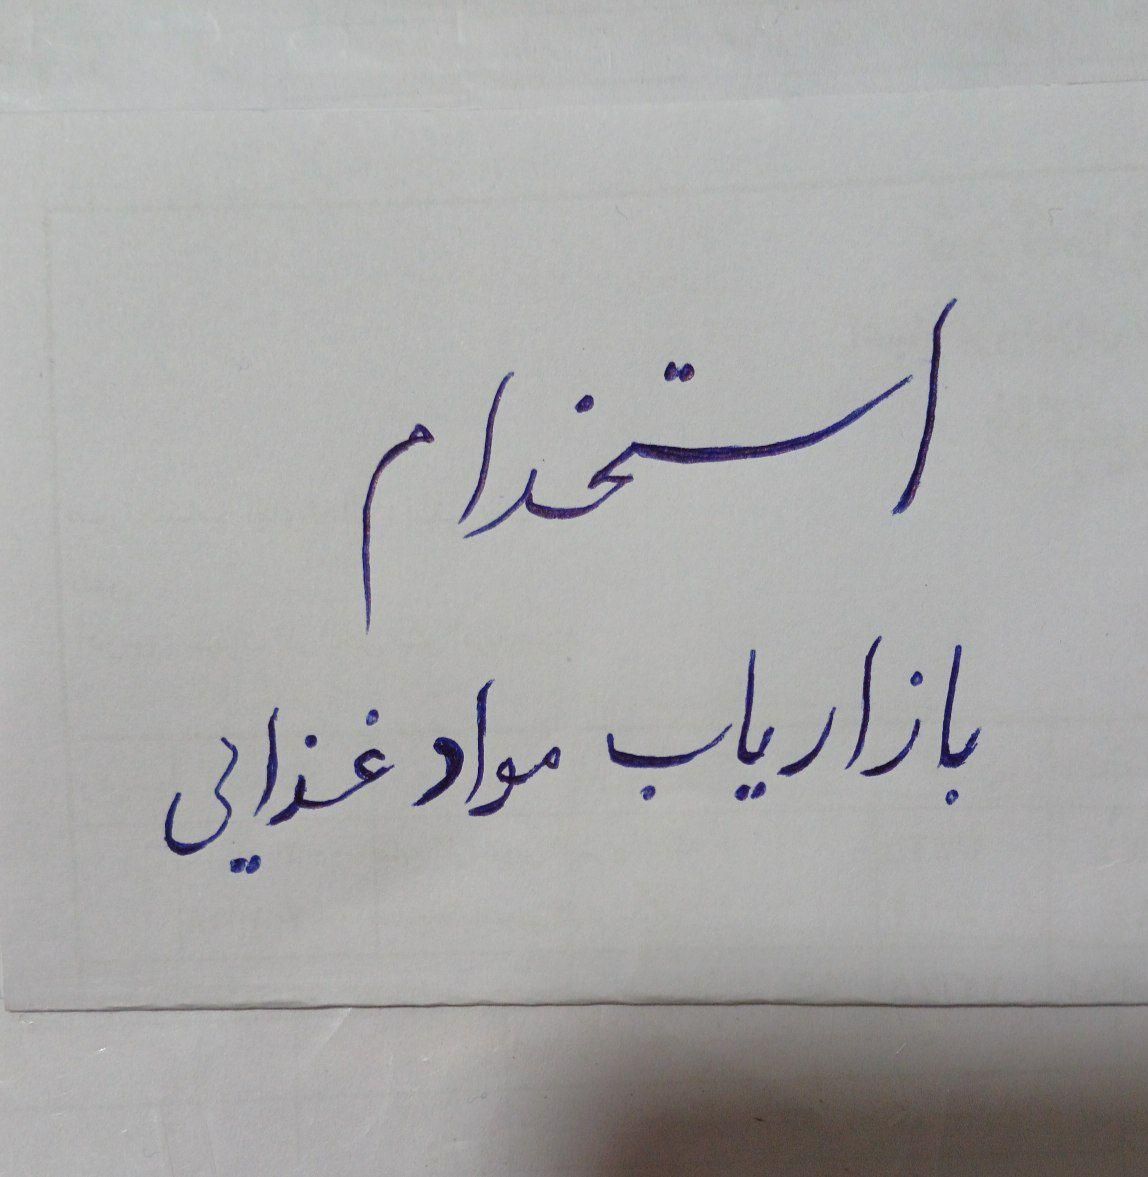 استخدام
بازاریاب مواد غذایی